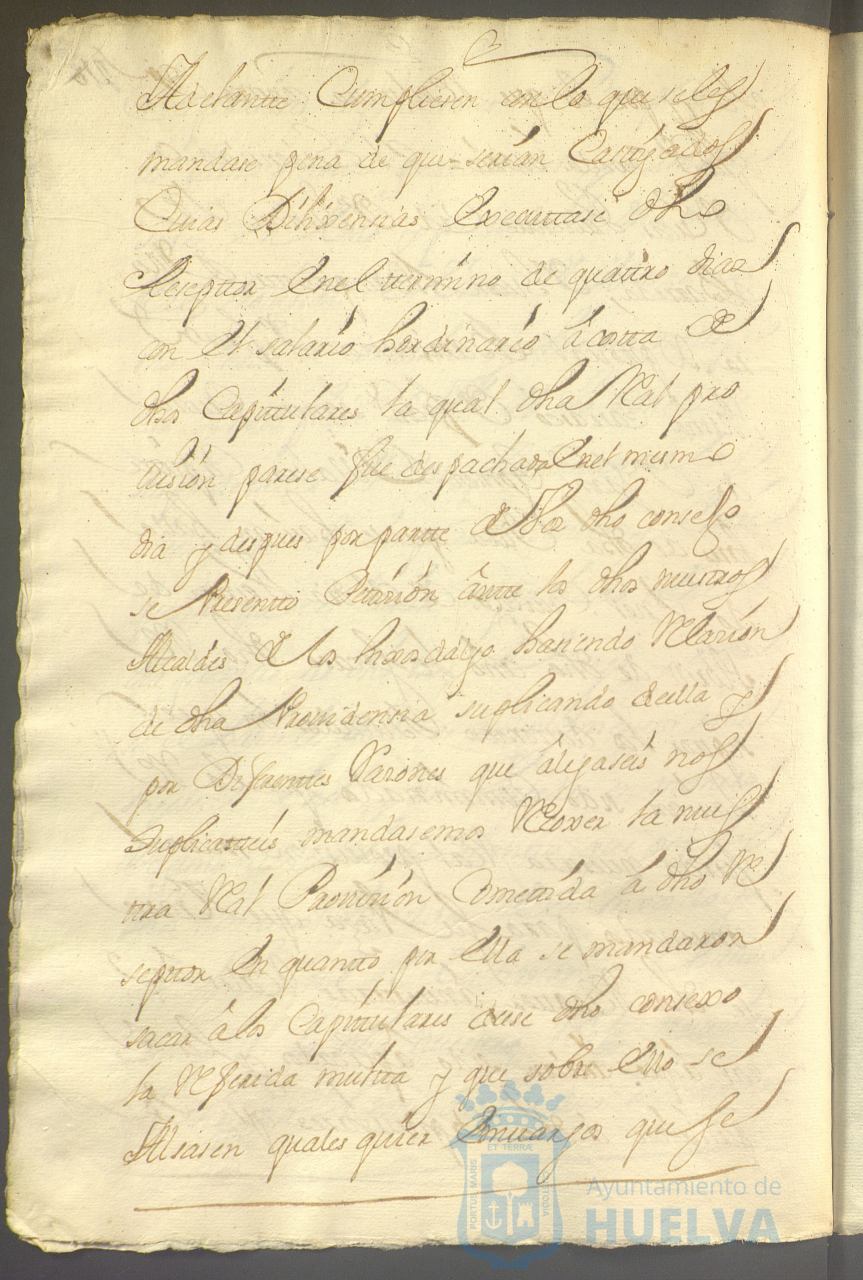 Adelantte Cumpliesen con lo que se les
mandase pena de que serian Castigados
Cuias Dilixensias Executtase dho
Reseptor En el termino de quattro dias
con el salario hordinario â costa de
dhos Capitulares la qual dha Real pro
uision parese fue despachada En el mismo
dia y despues por partte de Vos dho consejo
se Presentto Petision ante los dhos nuestros
Alcaldes de los hixosdalgo hasiendo Relasion
de dha Prouidensia suplicando de ella y
por Diferentes Rasones que alegaseis nos
Suplicasteis mandasemos Recoxer la nues
ttra Real Prouision Comettida â dho Re
septor En quantto por Ella se mandaron
sacar â los Capitulares de ese dho consexo
la Referida multta y que sobre Ello se
Alsasen quales quier Enuargos que se
ET TERRÆ
PORTUS MARIS
CUSTODIA
Ayuntamiento de
HUELVA